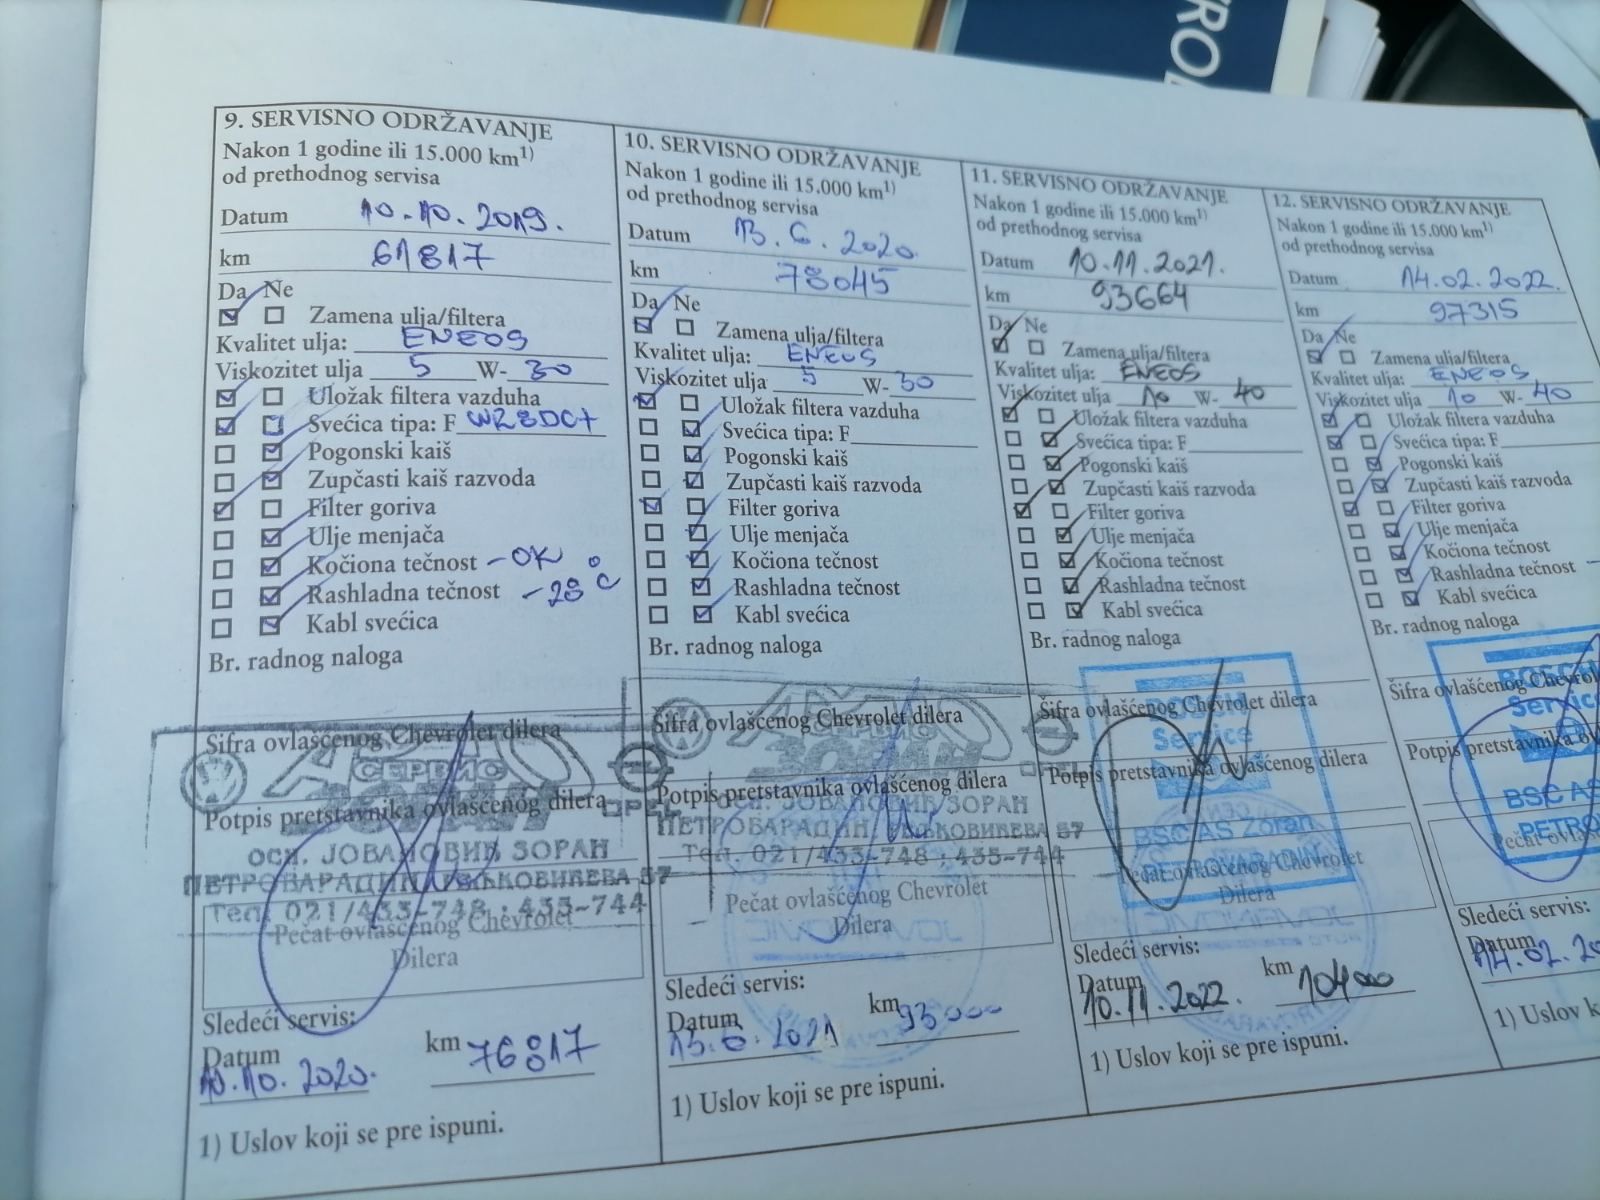 TRO
9. SERVISNO ODRŽAVANJE
Nakon 1 godine ili 15.000 km1)
od prethodnog servisa
Datum 10.10.2019.
km 61817
Da Ne
Zamena ulja/filtera
Kvalitet ulja: ENEOS
Viskozitet ulja 5 W- 30
Uložak filtera vazduha
Svećica tipa: F WR8DC+
Pogonski kaiš
Zupčasti kaiš razvoda
Filter goriva
Ulje menjača
Kočiona tečnost - OK
Rashladna tečnost -28°C
Kabl svećica
Br. radnog naloga
Šifra ovlašćenog Chevrolet dilera
СЕРВИС
ЗОРАН
Potpis pretstavnika ovlašćenog dilera
OPEL
ОСН. ЈОВАНОВИЋ ЗОРАН
ПЕТРОВАРАДИН, 37
Тел. 021/433-748 ; 433-744
Pečat ovlašćenog Chevrolet
Dilera
Sledeći servis:
Datum 10.10.2020. km 76817
1) Uslov koji se pre ispuni.
10. SERVISNO ODRŽAVANJE
Nakon 1 godine ili 15.000 km1)
od prethodnog servisa
Datum 13.6.2020.
km 78045
Da Ne
Zamena ulja/filtera
Kvalitet ulja: ENEOS
Viskozitet ulja 5 W- 30
Uložak filtera vazduha
Svećica tipa: F
Pogonski kaiš
Zupčasti kaiš razvoda
Filter goriva
Ulje menjača
Kočiona tečnost
Rashladna tečnost
Kabl svećica
Br. radnog naloga
Šifra ovlašćenog Chevrolet dilera
ЗОРАН
Potpis pretstavnika ovlašćenog dilera
ОСН. ЈОВАНОВИЋ ЗОРАН
ПЕТРОВАРАДИН, 37
Тел. 021/433-748 ; 433-744
Pečat ovlašćenog Chevrolet
Dilera
Sledeći servis:
Datum 13.6.2021 km 93000
1) Uslov koji se pre ispuni.
11. SERVISNO ODRŽAVANJE
Nakon 1 godine ili 15.000 km1)
od prethodnog servisa
Datum 10.11.2021.
km 93664
Da Ne
Zamena ulja/filtera
Kvalitet ulja: ENEOS
Viskozitet ulja 10 W- 40
Uložak filtera vazduha
Svećica tipa: F
Pogonski kaiš
Zupčasti kaiš razvoda
Filter goriva
Ulje menjača
Kočiona tečnost
Rashladna tečnost
Kabl svećica
Br. radnog naloga
Šifra ovlašćenog Chevrolet dilera
BOSCH
Service
Potpis pretstavnika ovlašćenog dilera
BSC AS Zoran
PETROVARADIN
Pečat ovlašćenog Chevrolet
Dilera
Sledeći servis:
Datum 10.11.2022. km 104000
1) Uslov koji se pre ispuni.
12. SERVISNO ODRŽAVANJE
Nakon 1 godine ili 15.000 km1)
od prethodnog servisa
Datum 14.02.2022.
km 97315
Da Ne
Zamena ulja/filtera
Kvalitet ulja: ENEOS
Viskozitet ulja 10 W- 40
Uložak filtera vazduha
Svećica tipa: F
Pogonski kaiš
Zupčasti kaiš razvoda
Filter goriva
Ulje menjača
Kočiona tečnost
Rashladna tečnost
Kabl svećica
Br. radnog naloga
BOSCH
Šifra ovlašćenog Chevrol
Service
Potpis pretstavnika ov
BSC AS
PETRO
Pečat
Sledeći servis:
Datum
14.02.20
1) Uslov k